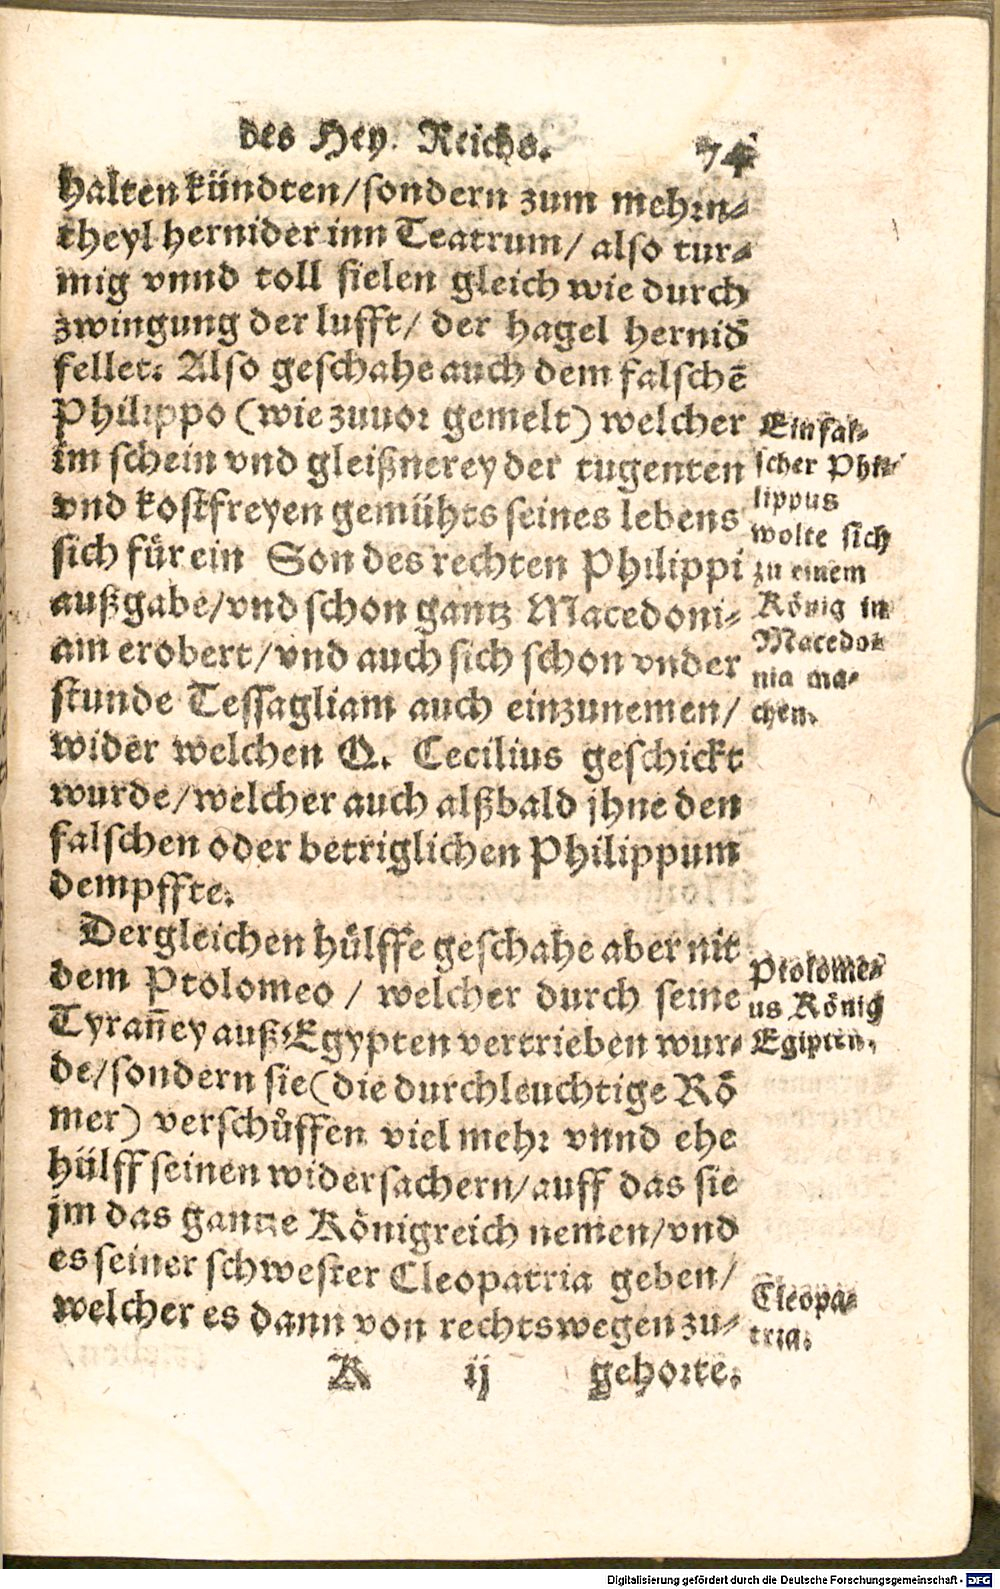 des Hey. Reichs.
74
halten kündten/sondern zum mehrn-
theyl hernider inn Teatrum/ also tur-
mig vnnd toll fielen gleich wie durch
zwingung der lufft/ der hagel hernid̄
fellet. Also geschahe auch dem falschē
Philippo (wie zuuor gemelt) welcher
im schein vnd gleißnerey der tugenten
vnd kostfreyen gemühts seines lebens
sich für ein Son des rechten Philippi
außgabe/vnd schon gantz Macedoni-
am erobert/vnd auch sich schon vnder
stunde Tessagliam auch einzunemen/
wider welchen Q. Cecilius geschickt
wurde/welcher auch alßbald jhne den
falschen oder betriglichen Philippum
dempffte.
Ein fal-
scher Phi-
lippus
wolte sich
zu einem
König in
Macedo-
nia ma-
chen.
Dergleichen hülffe geschahe aber nit
dem Ptolomeo / welcher durch seine
Tyrañey auß Egypten vertrieben wur-
de/sondern sie(die durchleuchtige Rö
mer) verschůffen viel mehr vnnd ehe
hülff seinen widersachern/auff das sie
jm das gantze Königreich nemen/vnd
es seiner schwester Cleopatria geben/
welcher es dann von rechtswegen zu-
Ptolome-
us König
Egipten.
Cleopa-
tria.
K ij gehorte.
Digitalisierung gefördert durch die Deutsche Forschungsgemeinschaft - DFG